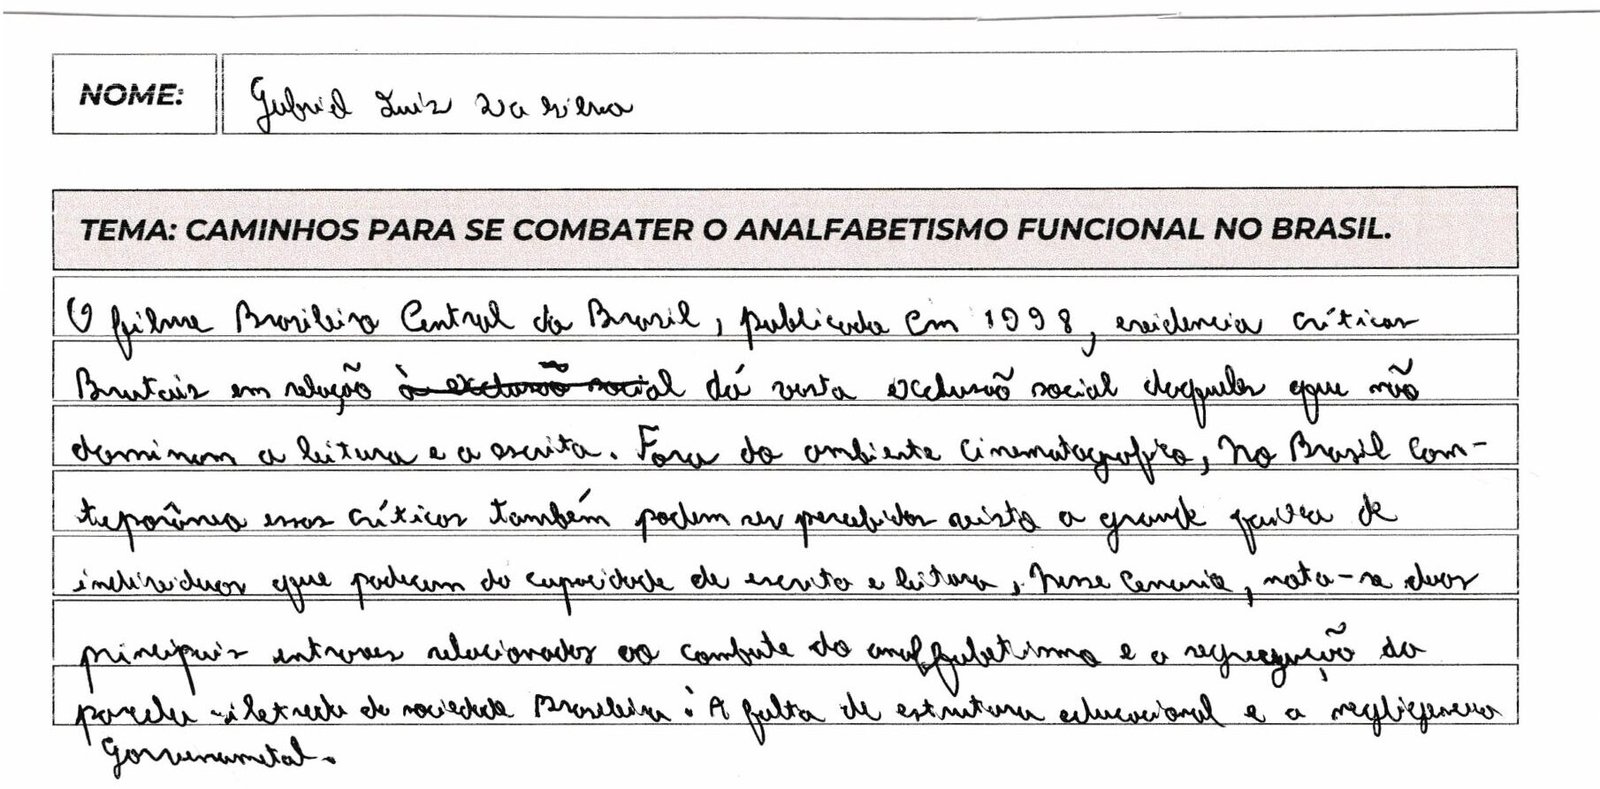 NOME: Gabriel Luiz Da Silva
TEMA: CAMINHOS PARA SE COMBATER O ANALFABETISMO FUNCIONAL NO BRASIL.
O filme Brasileiro Central do Brasil, publicado em 1998, evidencia críticas
Brutais em relação à exclusão social dá vasta exclusão social daqueles que não
dominam a leitura e a escrita. Fora do ambiente cinematografico, no Brasil com-
teporâneo essas críticas também podem ser percebidas visto a grande faixa de
individuos que padecem da capacidade de escrita e leitura, nesse cenario, nota-se duas
principais entraves relacionados ao combate do analfabetismo e a segregação da
parcela iletrada da sociedade Brasileira: A falta de estrutura educacional e a negligencia
Governametal.